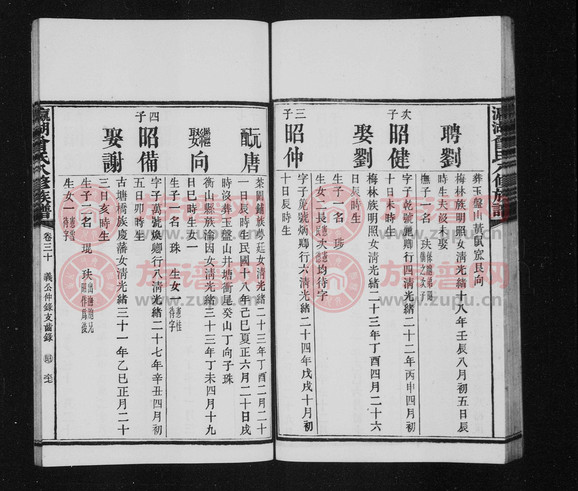 瀛湖曾氏八修族譜
葬玉盤山黃鼠窠艮向
聘劉
梅林族明照女清光緒十八年壬辰八月初五日辰
時生夫故未娶
撫子一名 玞
次子
昭健
字子乾號 卿行四清光緒二十二年丙申四月初
十日未時生
娶劉
梅林族明照女清光緒二十三年丁酉四月二十六
日辰時生
生子一名 琇
生女二 長 次 均待字
三子
昭仲
字子 號炳卿行六清光緒二十四年戊戌十月初
十日辰時生
配唐
茶園鋪族 廷女清光緒二十三年丁酉二月二十
一日辰時生民國十八年己巳夏正六月二十日戌
時沒葬玉盤山井塘衝屋癸山丁向子珠
繼娶
向
衡山縣族 因女清光緒三十三年丁未四月十九
日巳時生
生子一名 珠 生女一 待字
四子
昭備
字子萬號煥卿行八清光緒二十七年辛丑四月初
五日卯時生
娶謝
古塘橋族慶藩女清光緒三十一年乙巳正月二十
三日亥時生
生子二名 琨 玞
生女一 待字
瀛湖曾氏八修族譜
卷三十
義公仲錄支齒錄